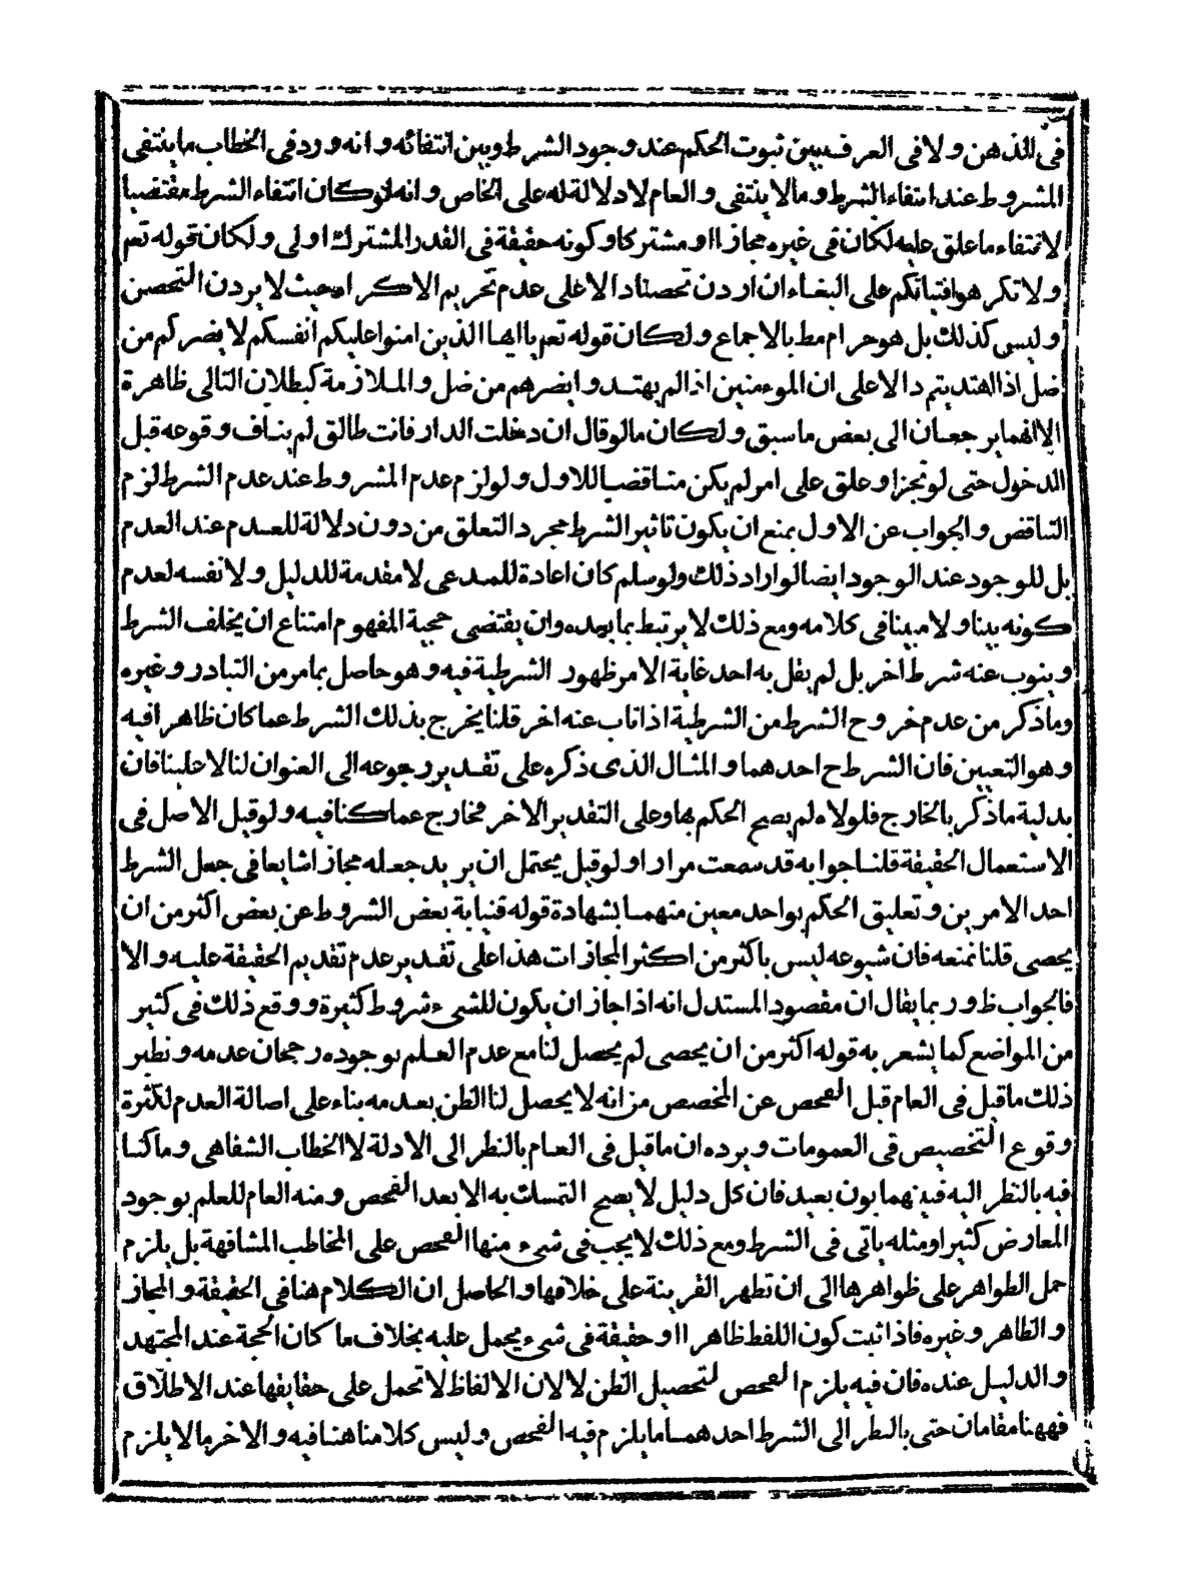 فى الذهن ولا فى العرف بين ثبوت الحكم عند وجود الشرط وبين انتفائه وانه ورد فى الخطاب ما ينتفى
المشروط عند انتفاء الشرط وما لا ينتفى والعام لا دلالة له على الخاص وانه لو كان انتفاء الشرط مقتضيا
لانتفاء ما علق عليه لكان فى غيره مجازا او مشتركا وكونه حقيقة فى القدر المشترك اولى ولكان قوله تعم
ولا تكرهوا فتياتكم على البغاء ان اردن تحصنا دالا على عدم تحريم الاكراه بحيث لا يردن التحصن
وليس كذلك بل هو حرام مط بالاجماع ولكان قوله تعم يا ايها الذين امنوا عليكم انفسكم لا يضركم من
ضل اذا اهتديتم دالا على ان المؤمنين اذا لم يهتدوا يضرهم من ضل والملازمة كبطلان التالى ظاهرة
الا انهما يرجعان الى بعض ما سبق ولكان ما لو قال ان دخلت الدار فانت طالق لم يناف وقوعه قبل
الدخول حتى لو نجز او علق على امر لم يكن متناقضا للاول ولو لزم عدم المشروط عند عدم الشرط لزم
التناقض والجواب عن الاول بمنع ان يكون تاثير الشرط مجرد التعلق من دون دلالة للعدم عند العدم
بل للوجود عند الوجود ايضا لو اراد ذلك ولو سلم كان اعادة للمدعى لا مقدمة للدليل ولا نفسه لعدم
كونه بينا ولا مبينا فى كلامه ومع ذلك لا يرتبط بما بعده وان يقتضى حجية المفهوم امتناع ان يخلف الشرط
وينوب عنه شرط اخر بل لم يقل به احد غاية الامر ظهور الشرطية فيه وهو حاصل بما مر من التبادر وغيره
وما ذكر من عدم خروج الشرط من الشرطية اذا ناب عنه اخر قلنا يخرج بذلك الشرط عما كان ظاهرا فيه
وهو التعيين فان الشرط ح احدهما والمثال الذى ذكره على تقدير رجوعه الى العنوان لنا لا علينا فان
بدلية ما ذكر بالخارج فلولاه لم يصح الحكم بها وعلى التقدير الاخر فخارج عما كنا فيه ولو قيل الاصل فى
الاستعمال الحقيقة قلنا جوابه قد سمعت مرارا ولو قيل يحتمل ان يريد جعله مجازا شايعا فى جعل الشرط
احد الامرين وتعليق الحكم بواحد معين منهما بشهادة قوله فنيابة بعض الشروط عن بعض اكثر من ان
يحصى قلنا نمنعه فان شيوعه ليس باكثر من اكثر المجازات هذا على تقدير عدم تقديم الحقيقة عليه والا
فالجواب ظ وربما يقال ان مقصود المستدل انه اذا جاز ان يكون للشىء شروط كثيرة ووقع ذلك فى كثير
من المواضع كما يشعر به قوله اكثر من ان يحصى لم يحصل لنا مع عدم العلم بوجوده رجحان عدمه ونظير
ذلك ما قيل فى العام قبل الفحص عن المخصص من انه لا يحصل لنا الظن بعدمه بناء على اصالة العدم لكثرة
وقوع التخصيص فى العمومات ويرده ان ما قيل فى العام بالنظر الى الادلة لا الخطاب الشفاهى وما كنا
فيه بالنظر اليه فبينهما بون بعيد فان كل دليل لا يصح التمسك به الا بعد الفحص ومنه العام للعلم بوجود
المعارض كثيرا ومثله ياتى فى الشرط ومع ذلك لا يجب فى شىء منها الفحص على المخاطب المشافهة بل يلزم
حمل الظواهر على ظواهرها الى ان تظهر القرينة على خلافها والحاصل ان الكلام هنا فى الحقيقة والمجاز
والظاهر وغيره فاذا ثبت كون اللفظ ظاهرا او حقيقة فى شىء يحمل عليه بخلاف ما كان الحجة عند المجتهد
والدليل عنده فان فيه يلزم الفحص لتحصيل الظن لا لان الالفاظ لا تحمل على حقايقها عند الاطلاق
فههنا مقامان حتى بالنظر الى الشرط احدهما ما يلزم فيه الفحص وليس كلامنا هنا فيه والاخر ما لا يلزم